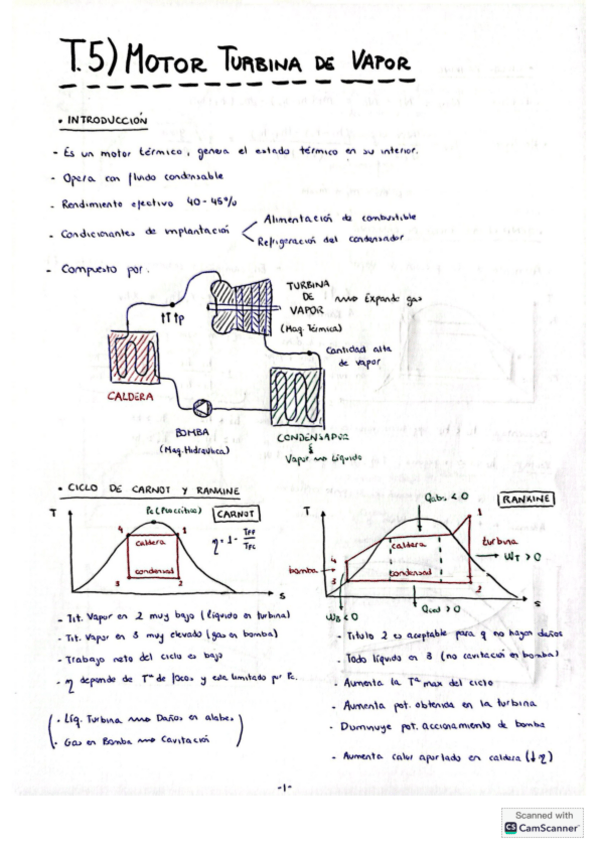 T.5) MOTOR TURBINA DE VAPOR
• INTRODUCCIÓN
- Es un motor térmico, genera el estado térmico en su interior.
- Opera con fluido condensable
- Rendimiento efectivo 40-45%
- Condicionantes de implantación
Alimentación de combustible
Refrigeración del condensador
- Compuesto por:
TURBINA
DE
VAPOR
Expande gas
(Maq. Térmica)
↑T ↑p
Cantidad alta
de vapor
CALDERA
BOMBA
(Maq. Hidraulica)
CONDENSADOR
Vapor Líquido
• CICLO DE CARNOT Y RANKINE
T
Pc (Pto crítico)
CARNOT
η = 1 - TFF/TFC
4
1
caldera
condensad
3
2
s
- Tit. Vapor en 2 muy bajo (líquido en turbina)
- Tit. Vapor en 3 muy elevado (gas en bomba)
- Trabajo neto del ciclo es bajo
- η depende de Tas de focos y está limitado por Pc.
- Líq. Turbina Daños en alabes
- Gas en Bomba Cavitación
Qabs. < 0
RANKINE
T
1
caldera
turbina
WT > 0
4
bomba
condensad
3
2
s
WB < 0
Qced > 0
- Titulo 2 es aceptable para q no hayan daños
- Todo líquido en 3 (no cavitación en bomba)
- Aumenta la Ta max del ciclo
- Aumenta pot. obtenida en la turbina
- Disminuye pot. accionamiento de bomba
- Aumenta calor aportado en caldera (↓η)
-1-
Scanned with
CS CamScanner